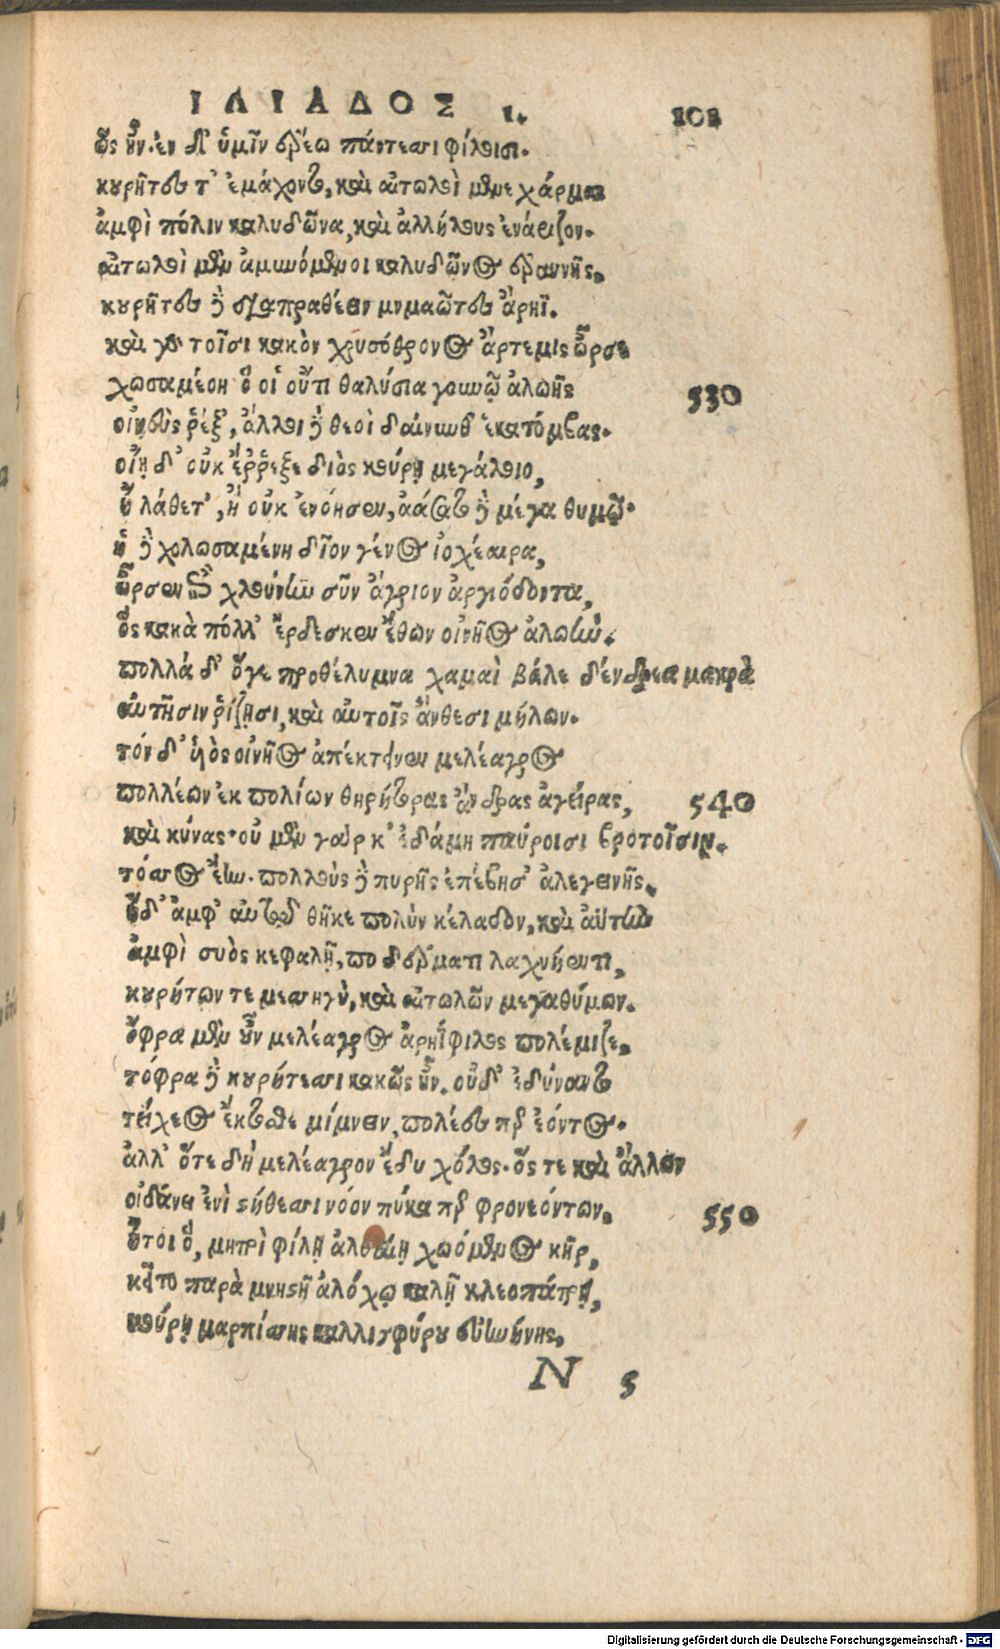 ΙΛΙΑΔΟΣ ι. 101
ὅς ἦν· ἐν δ' ὑμῖν ἐρέω πάντεσσι φίλοισι.
κουρῆτές τ' ἐμάχοντο, καὶ αἰτωλοὶ μενεχάρμαι
ἀμφὶ πόλιν καλυδῶνα, καὶ ἀλλήλους ἐνάριζον.
αἰτωλοὶ μὲν ἀμυνόμενοι καλυδῶνος ἐραννῆς,
κουρῆτες δὲ διαπραθέειν μεμαῶτες ἄρηϊ.
καὶ γὰρ τοῖσι κακὸν χρυσόθρονος ἄρτεμις ὦρσε
χωσαμένη ὅ οἱ οὔτι θαλύσια γουνῷ ἀλωῆς 530
οἰνεὺς ῥέξ', ἄλλοι δὲ θεοὶ δαίνυνθ' ἑκατόμβας.
οἴῃ δ' οὐκ ἔρρεξε διὸς κούρῃ μεγάλοιο,
ἢ λάθετ', ἢ οὐκ ἐνόησεν, ἀάσατο δὲ μέγα θυμῷ.
ἡ δὲ χολωσαμένη δῖον γένος ἰοχέαιρα,
ὦρσεν ἔπι χλούνην σῦν ἄγριον ἀργιόδοντα,
ὃς κακὰ πόλλ' ἔρδεσκεν ἔθων οἰνῆος ἀλωήν.
πολλὰ δ' ὅγε προθέλυμνα χαμαὶ βάλε δένδρεα μακρὰ
αὐτῇσιν ῥίζῃσι, καὶ αὐτοῖς ἄνθεσι μήλων.
τόν δ' υἱὸς οἰνῆος ἀπέκτεινεν μελέαγρος
πολλέων ἐκ πολίων θηρήτορας ἄνδρας ἀγείρας, 540
καὶ κύνας· οὐ μὲν γάρ κ' ἐδάμη παύροισι βροτοῖσιν.
τόσσος ἔην· πολλοὺς δὲ πυρῆς ἐπέβησ' ἀλεγεινῆς.
ἡ δ' ἀμφ' αὐτῷ θῆκε πολὺν κέλαδον, καὶ ἀϋτὴν
ἀμφὶ συὸς κεφαλῇ, καὶ δέρματι λαχνήεντι,
κουρήτων τε μεσηγὺ, καὶ αἰτωλῶν μεγαθύμων.
ὄφρα μὲν οὖν μελέαγρος ἀρηΐφιλος πολέμιζε,
τόφρα δὲ κουρήτεσσι κακῶς ἦν. οὐδ' ἐδύναντο
τείχεος ἔκτοσθε μίμνειν, πολέες περ ἐόντες.
ἀλλ' ὅτε δὴ μελέαγρον ἔδυ χόλος· ὅς τε καὶ ἄλλων
οἰδάνει ἐνὶ στήθεσσι νόον πύκα περ φρονεόντων, 550
ἤτοι ὅ, μητρὶ φίλῃ ἀλθαίῃ χωόμενος κῆρ,
κεῖτο παρὰ μνηστῇ ἀλόχῳ καλῇ κλεοπάτρῃ,
κούρῃ μαρπίσσης καλλισφύρου εὐηνίνης,
N 5
Digitalisierung gefördert durch die Deutsche Forschungsgemeinschaft - DFG